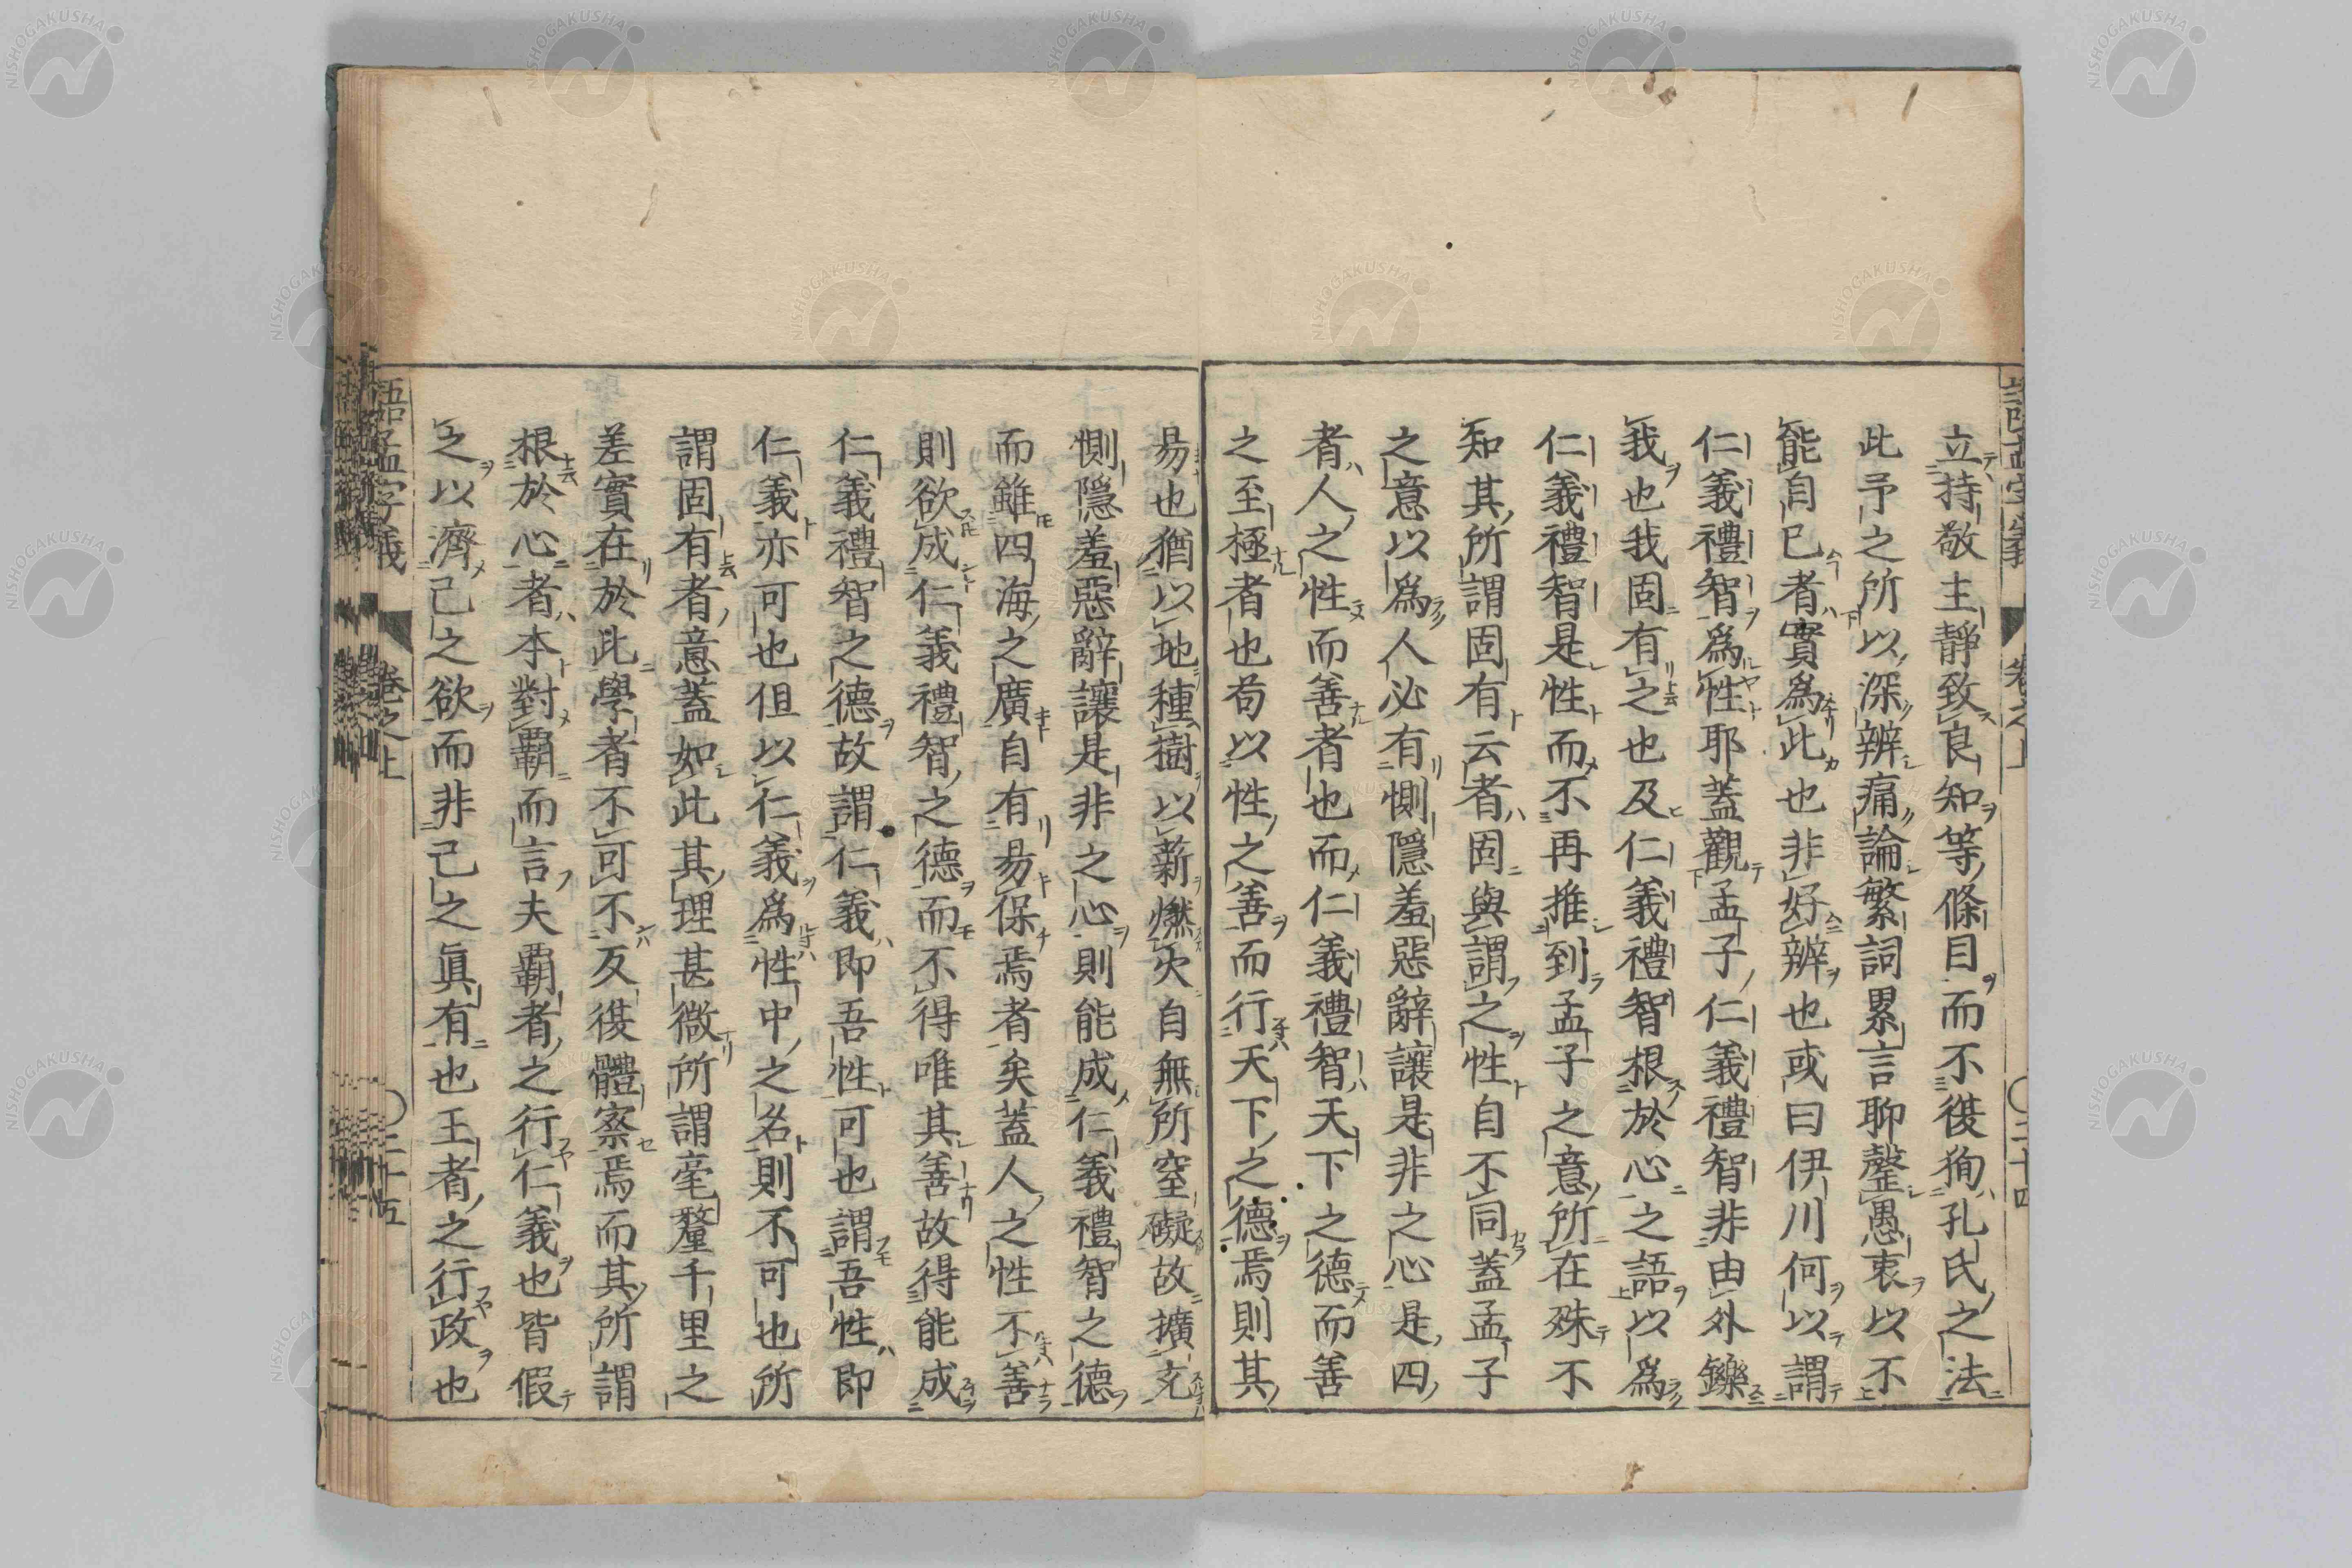 立持敬主靜致良知等條目而不復狥孔氏之法
此予之所以深辨痛論繁詞累言聊罄愚衷以不
能自已者實爲此也非好辨也或曰伊川何以謂
仁義禮智爲性耶蓋觀孟子仁義禮智非由外鑠
我也我固有之也及仁義禮智根於心之語以爲
仁義禮智是性而不再推到孟子之意所在殊不
知其所謂固有云者固與謂之性自不同蓋孟子
之意以爲人必有惻隱羞惡辭讓是非之心是四
者人之性而善者也而仁義禮智天下之德而善
之至極者也苟以性之善而行天下之德焉則其
易也猶以地種樹以薪燃火自無所窒礙故擴充
惻隱羞惡辭讓是非之心則能成仁義禮智之德
而雖四海之廣自有易保焉者矣蓋人之性不善
則欲成仁義禮智之德而不得唯其善故得能成
仁義禮智之德故謂仁義即吾性可也謂吾性即
仁義亦可也但以仁義爲性中之名則不可也所
謂固有者意蓋如此其理甚微所謂毫釐千里之
差實在於此學者不可不反復體察焉而其所謂
根於心者本對霸而言夫霸者之行仁義也皆假
之以濟己之欲而非己之眞有也王者之行政也
語孟字義 卷之上 二十五
NISHOGAKUSHA